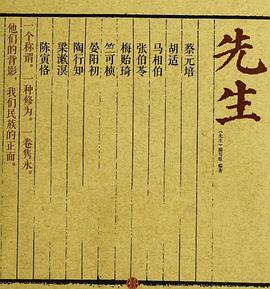 先生
《先生》编写组 编著
蔡元培
胡适
马相伯
张伯苓
梅贻琦
竺可桢
晏阳初
陶行知
梁漱溟
陈寅恪
一个称谓。一种修为。一卷隽永。
他们的背影，我们民族的正面。